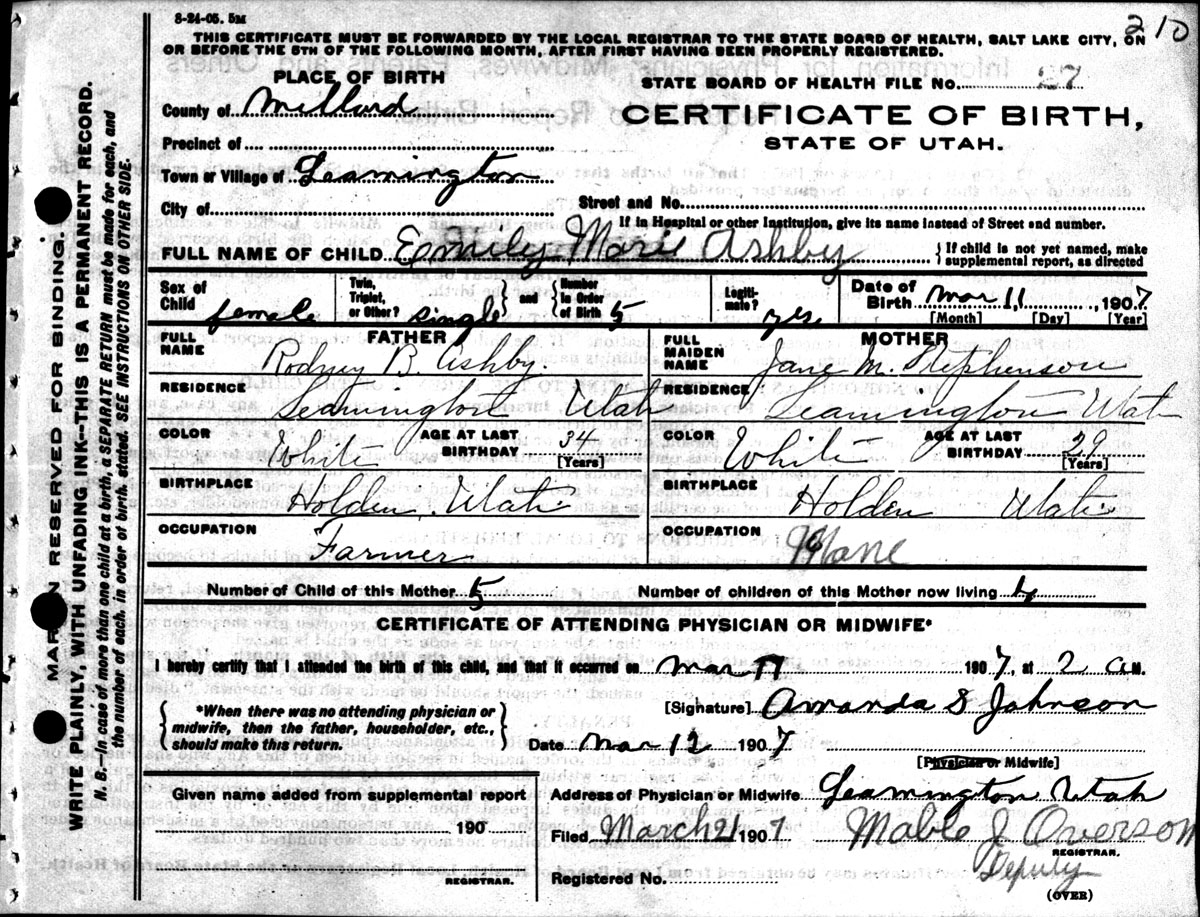 8-24-05. 5M
210
THIS CERTIFICATE MUST BE FORWARDED BY THE LOCAL REGISTRAR TO THE STATE BOARD OF HEALTH, SALT LAKE CITY, ON
OR BEFORE THE 5TH OF THE FOLLOWING MONTH, AFTER FIRST HAVING BEEN PROPERLY REGISTERED.
PLACE OF BIRTH
County of Millard
Precinct of
Town or Village of Leamington
City of
STATE BOARD OF HEALTH FILE No. 27
CERTIFICATE OF BIRTH,
STATE OF UTAH.
Street and No.
If in Hospital or other Institution, give its name instead of Street and number.
FULL NAME OF CHILD Emily Marie Ashby { If child is not yet named, make
supplemental report, as directed
Sex of Child female
Twin, Triplet, or Other? single } and { Number in Order of Birth 5
Legitimate? yes
Date of Birth Mar 11, 1907
[Month] [Day] [Year]
FATHER
FULL NAME Rodney B. Ashby.
RESIDENCE Leamington Utah
COLOR White AGE AT LAST BIRTHDAY 34
[Years]
BIRTHPLACE Holden Utah
OCCUPATION Farmer
MOTHER
FULL MAIDEN NAME Jane M. Stephenson
RESIDENCE Leamington Utah
COLOR White AGE AT LAST BIRTHDAY 29
[Years]
BIRTHPLACE Holden Utah
OCCUPATION None
Number of Child of this Mother 5 Number of children of this Mother now living
CERTIFICATE OF ATTENDING PHYSICIAN OR MIDWIFE*
I hereby certify that I attended the birth of this child, and that it occurred on Mar 11 1907, at 2 a.M.
{ *When there was no attending physician or
midwife, then the father, householder, etc.,
should make this return. }
[Signature] Amanda S Johnson
Date Mar 12 1907
[Physician or Midwife]
Given name added from supplemental report
190
REGISTRAR.
Address of Physician or Midwife Leamington Utah
Filed March 21 1907 Mable J Overson
REGISTRAR.
Deputy
Registered No.
(OVER)
MARGIN RESERVED FOR BINDING.
WRITE PLAINLY, WITH UNFADING INK--THIS IS A PERMANENT RECORD.
N. B.--In case of more than one child at a birth, a SEPARATE RETURN must be made for each, and
the number of each, in order of birth, stated. SEE INSTRUCTIONS ON OTHER SIDE.